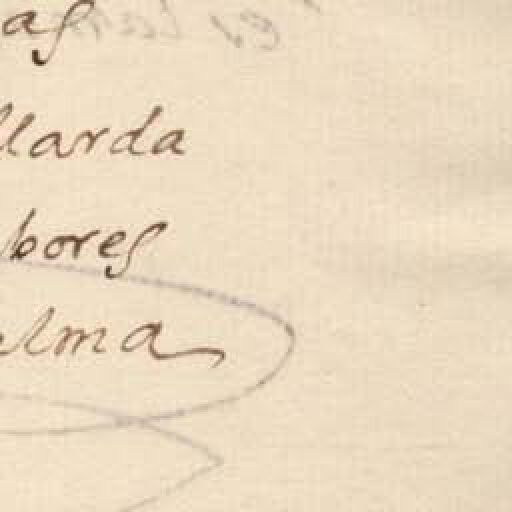 as
llarda
bores
elma